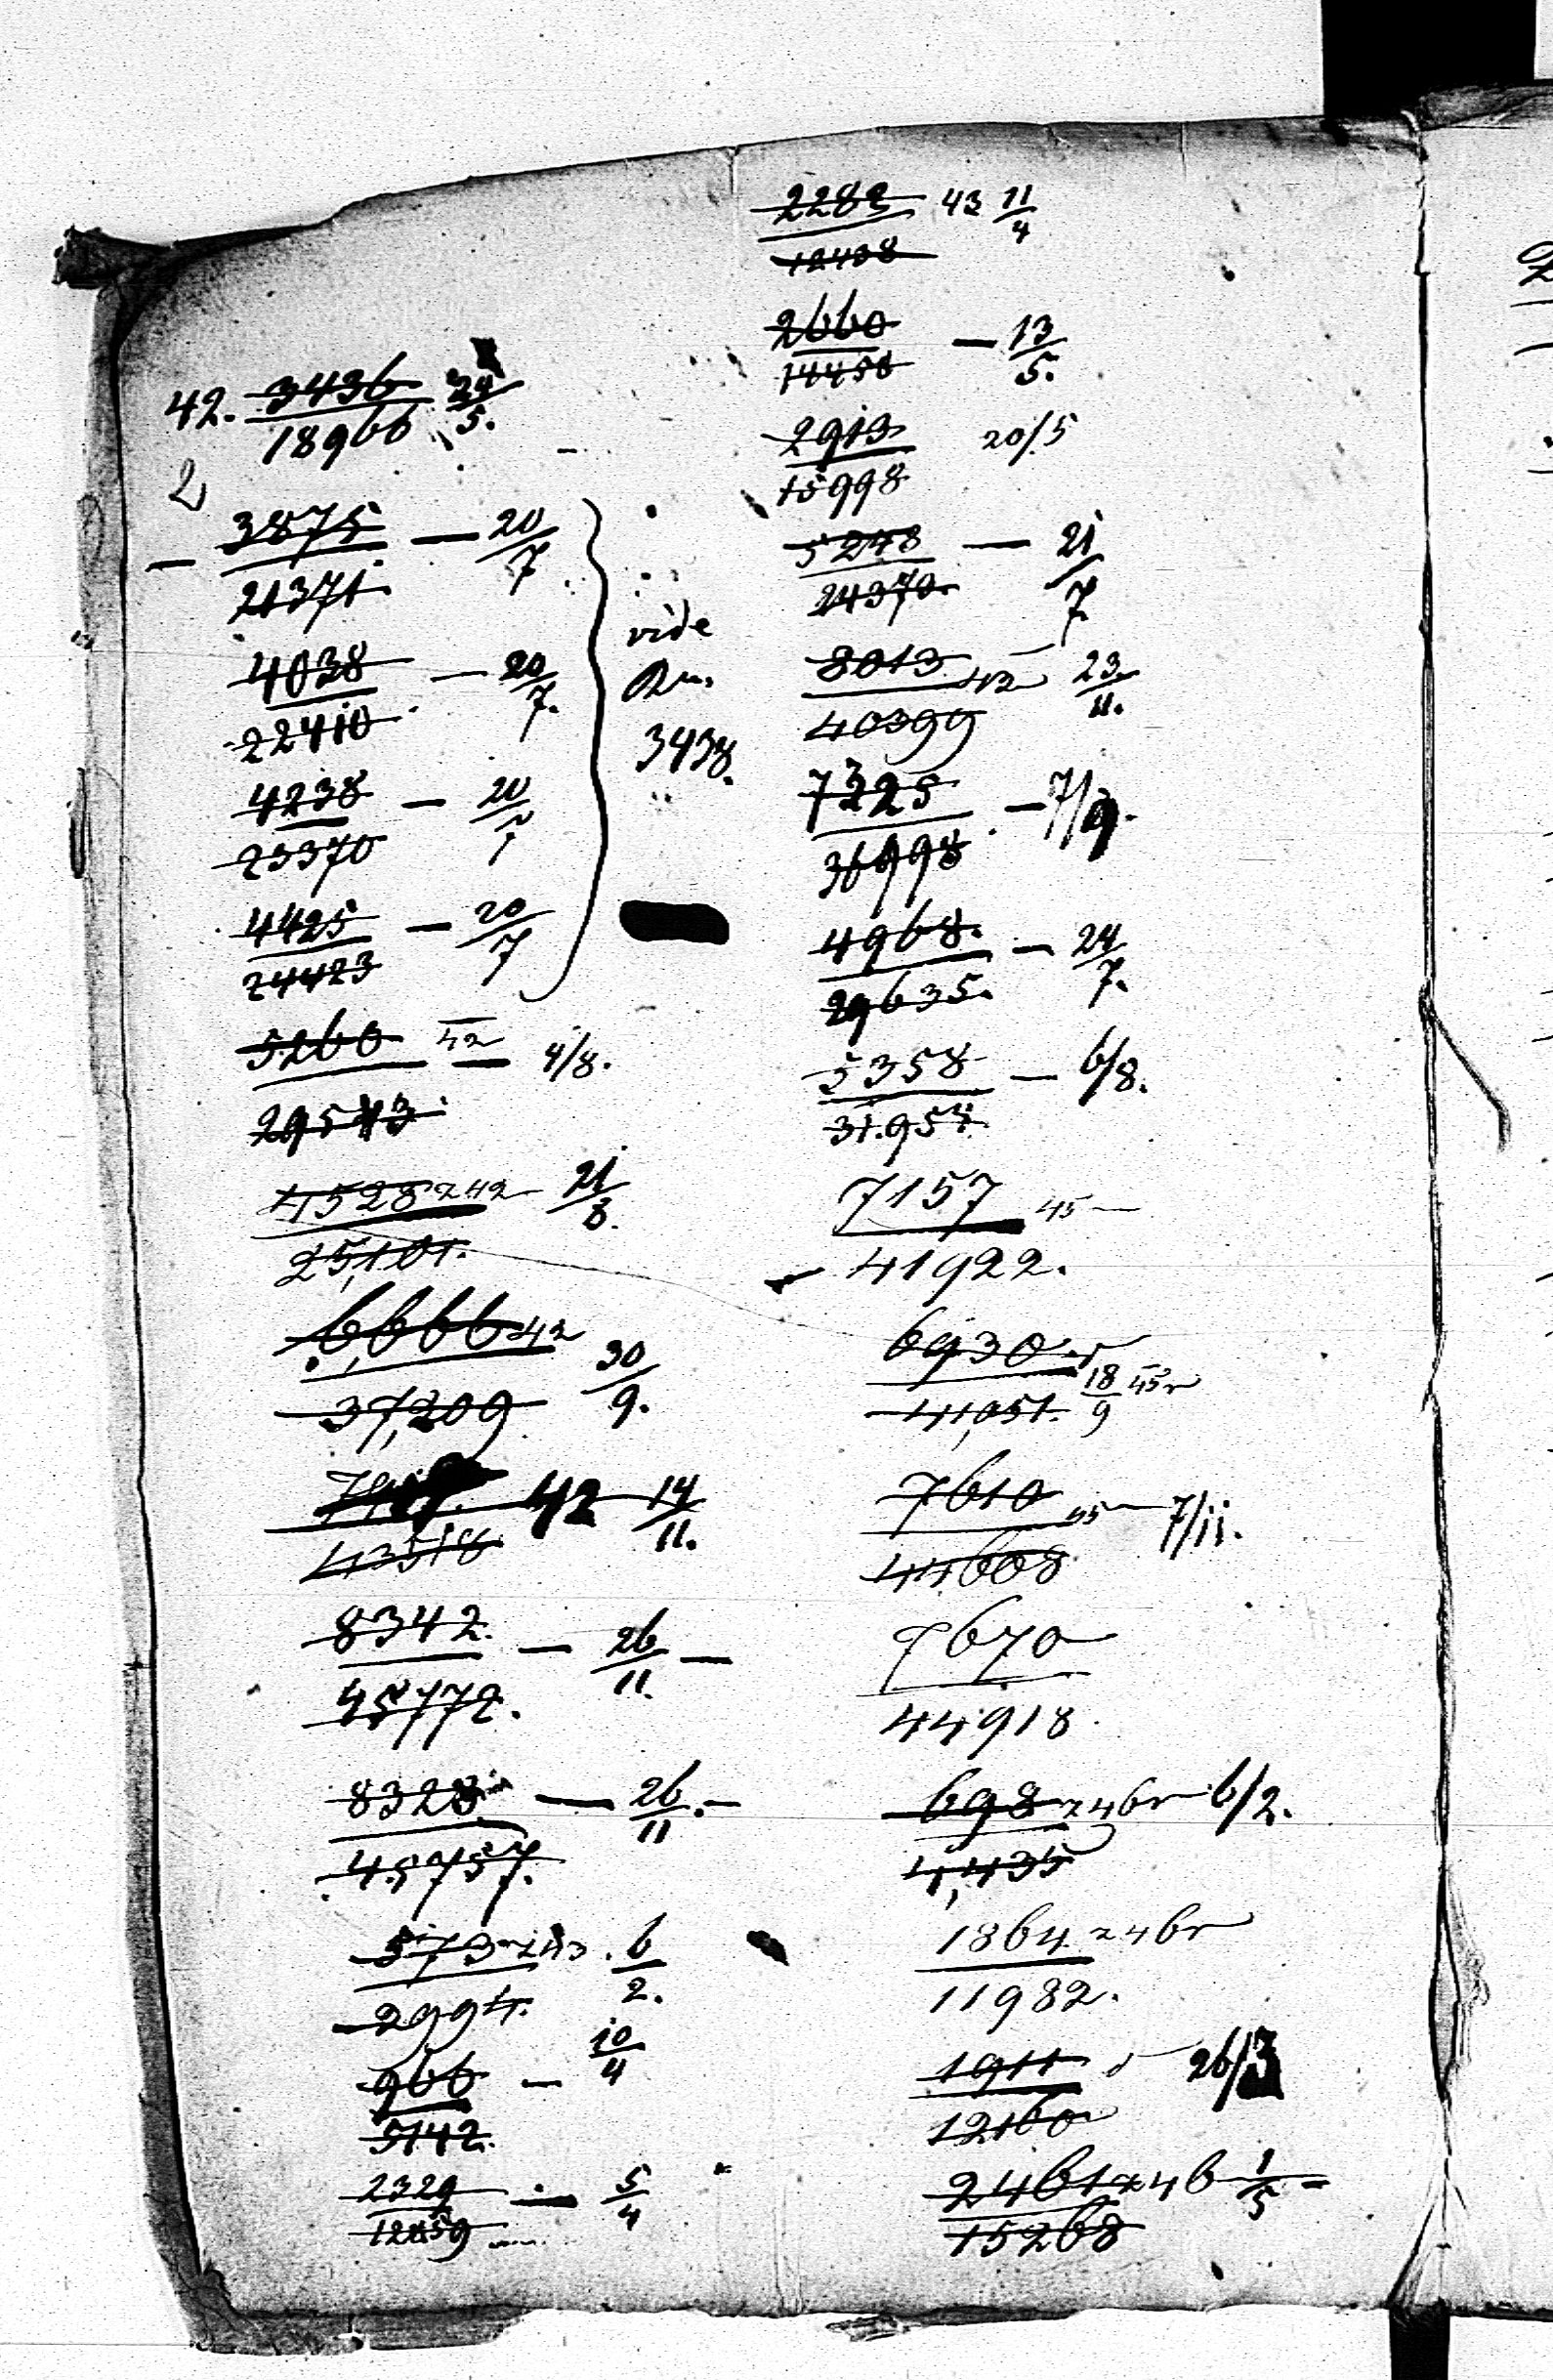 42. 3436 24/5.
18966
2
— 3875 — 20/7
21371
4038 — 20/7.
22410
4238 — 20/7
23370
4425 — 20/7
24423
vide
3438.
5260 42 — 4/8.
29543
4528 z 42 — 21/8.
25,101.
6,666 42 30/9.
37,209
42 14/11.
43518
8342. — 26/11. —
45772.
8328 — 26/11. —
45757.
573 z 43. 6/2.
2994.
966 — 10/4
5142.
2329 — 5/4
12459
2283 43 11/4
12438
2660 — 13/5.
14458
2913 20/5
15998
5248 — 21/7.
24370.
8013 42 23/11.
40399
7325 — 7/9.
36998
4968. — 24/7.
29635.
5358 — 6/8.
31.957
7157 45 —
41922.
6930 18/9 45
41,051.
7610 45 — 7/11.
44608
7670
44918.
698 z 46 — 6/2.
4,435
1864 z 46
11982.
1911 26/3
12160
2461 z 46 1/5 =
15268